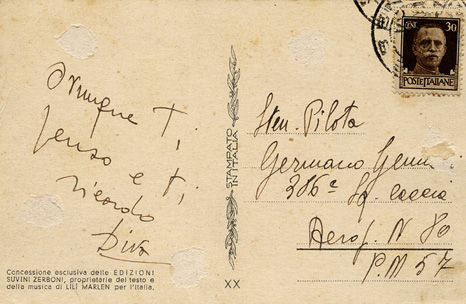 Ovunque Ti
penso e ti
ricordo
Diva
Concessione esclusiva delle EDIZIONI
SUVINI ZERBONI, proprietarie del testo e
della musica di LILI MARLEN per l'Italia.
STAMPATO
IN ITALIA
XX
CENT. 30
POSTE ITALIANE
Sten. Pilota
Germano
386ª Sq. Caccia
Aerop. N 80
P.M 57